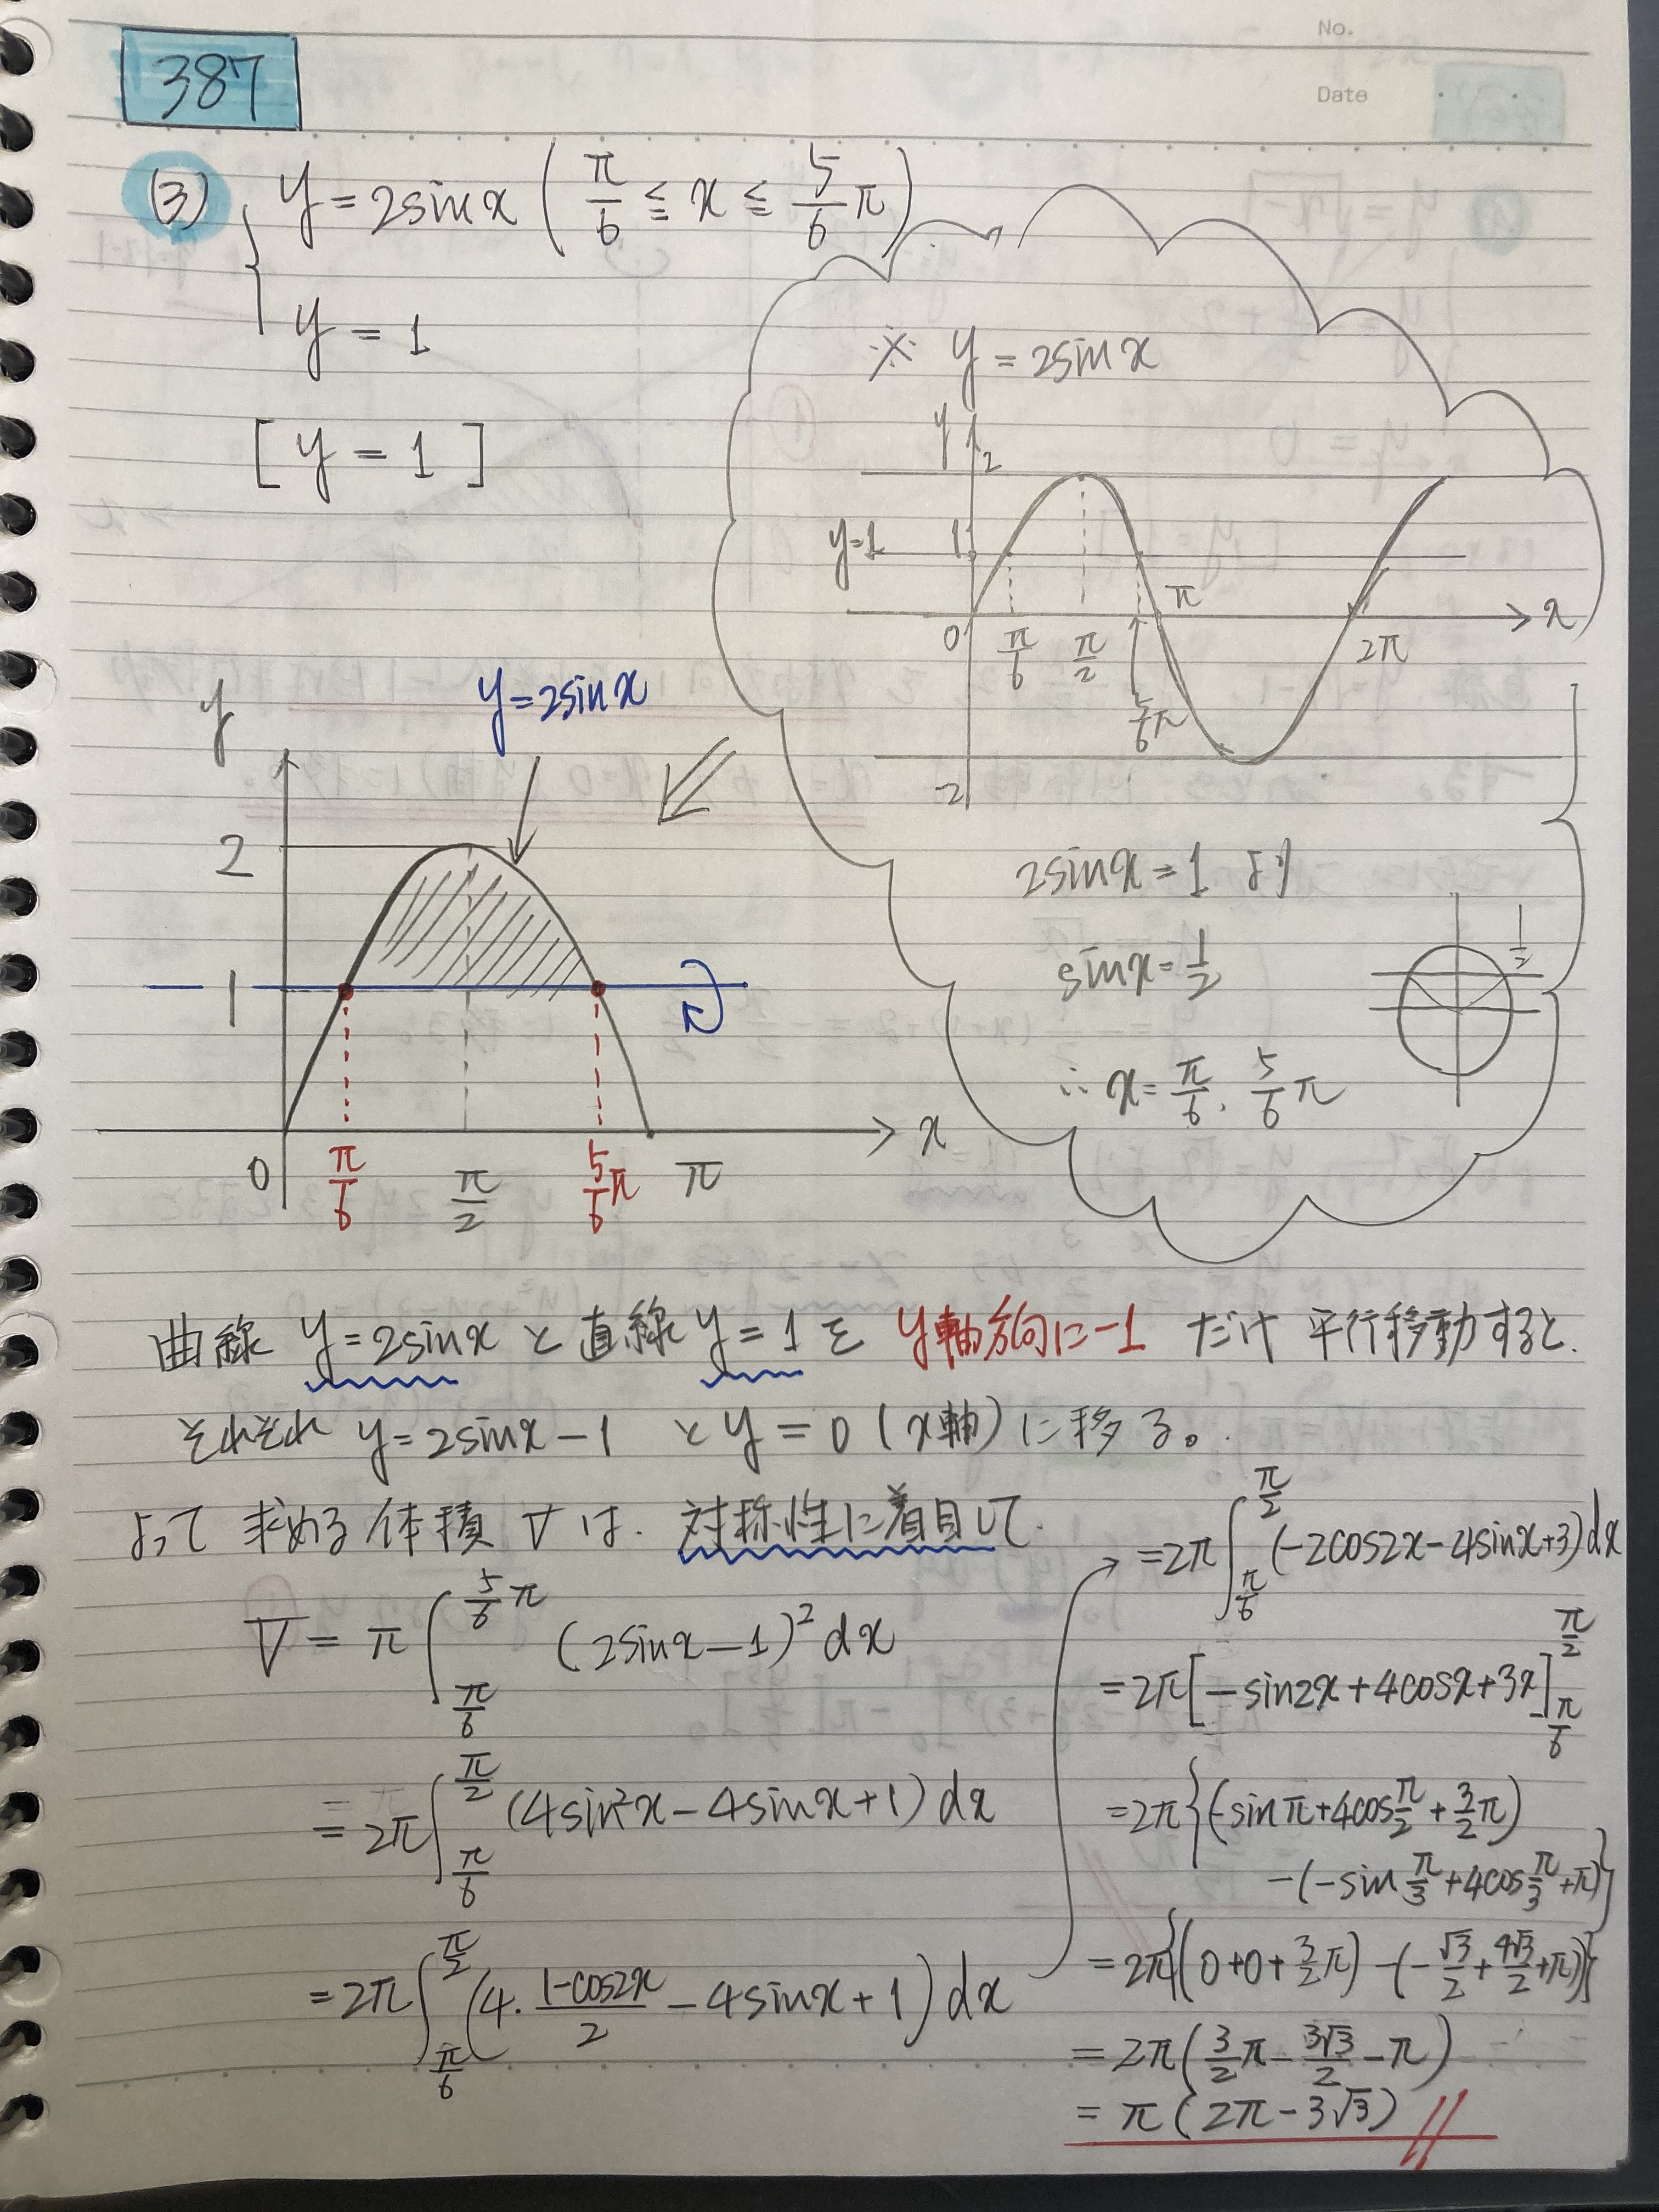 No.
Date
387
(3) y = 2sinx (π/6 ≦ x ≦ 5/6 π)
y = 1
[ y = 1 ]
※ y = 2sinx
y
2
y=1 1
0 π/6 π/2 5/6π π 2π x
-2
2sinx = 1 より
sinx = 1/2
1/2
∴ x = π/6, 5/6 π
y
y=2sinx
2
1
0 π/6 π/2 5/6π π x
曲線 y=2sinx と 直線 y=1 を y軸方向に-1 だけ 平行移動すると、
それぞれ y=2sinx-1 と y=0 (x軸) に移る。
よって 求める 体積 V は、対称性に着目して、
V = π∫_{π/6}^{5/6 π} (2sinx-1)² dx
= 2π∫_{π/6}^{π/2} (4sin²x - 4sinx + 1) dx
= 2π∫_{π/6}^{π/2} (4・(1-cos2x)/2 - 4sinx + 1) dx
= 2π∫_{π/6}^{π/2} (-2cos2x - 4sinx + 3) dx
= 2π[-sin2x + 4cosx + 3x]_{π/6}^{π/2}
= 2π{(-sinπ + 4cosπ/2 + 3/2 π)
-(-sin π/3 + 4cos π/3 + π)}
= 2π{(0+0+3/2 π) - (-√3/2 + 4√3/2 + π)}
= 2π(3/2 π - 3√3/2 - π)
= π(2π - 3√3)